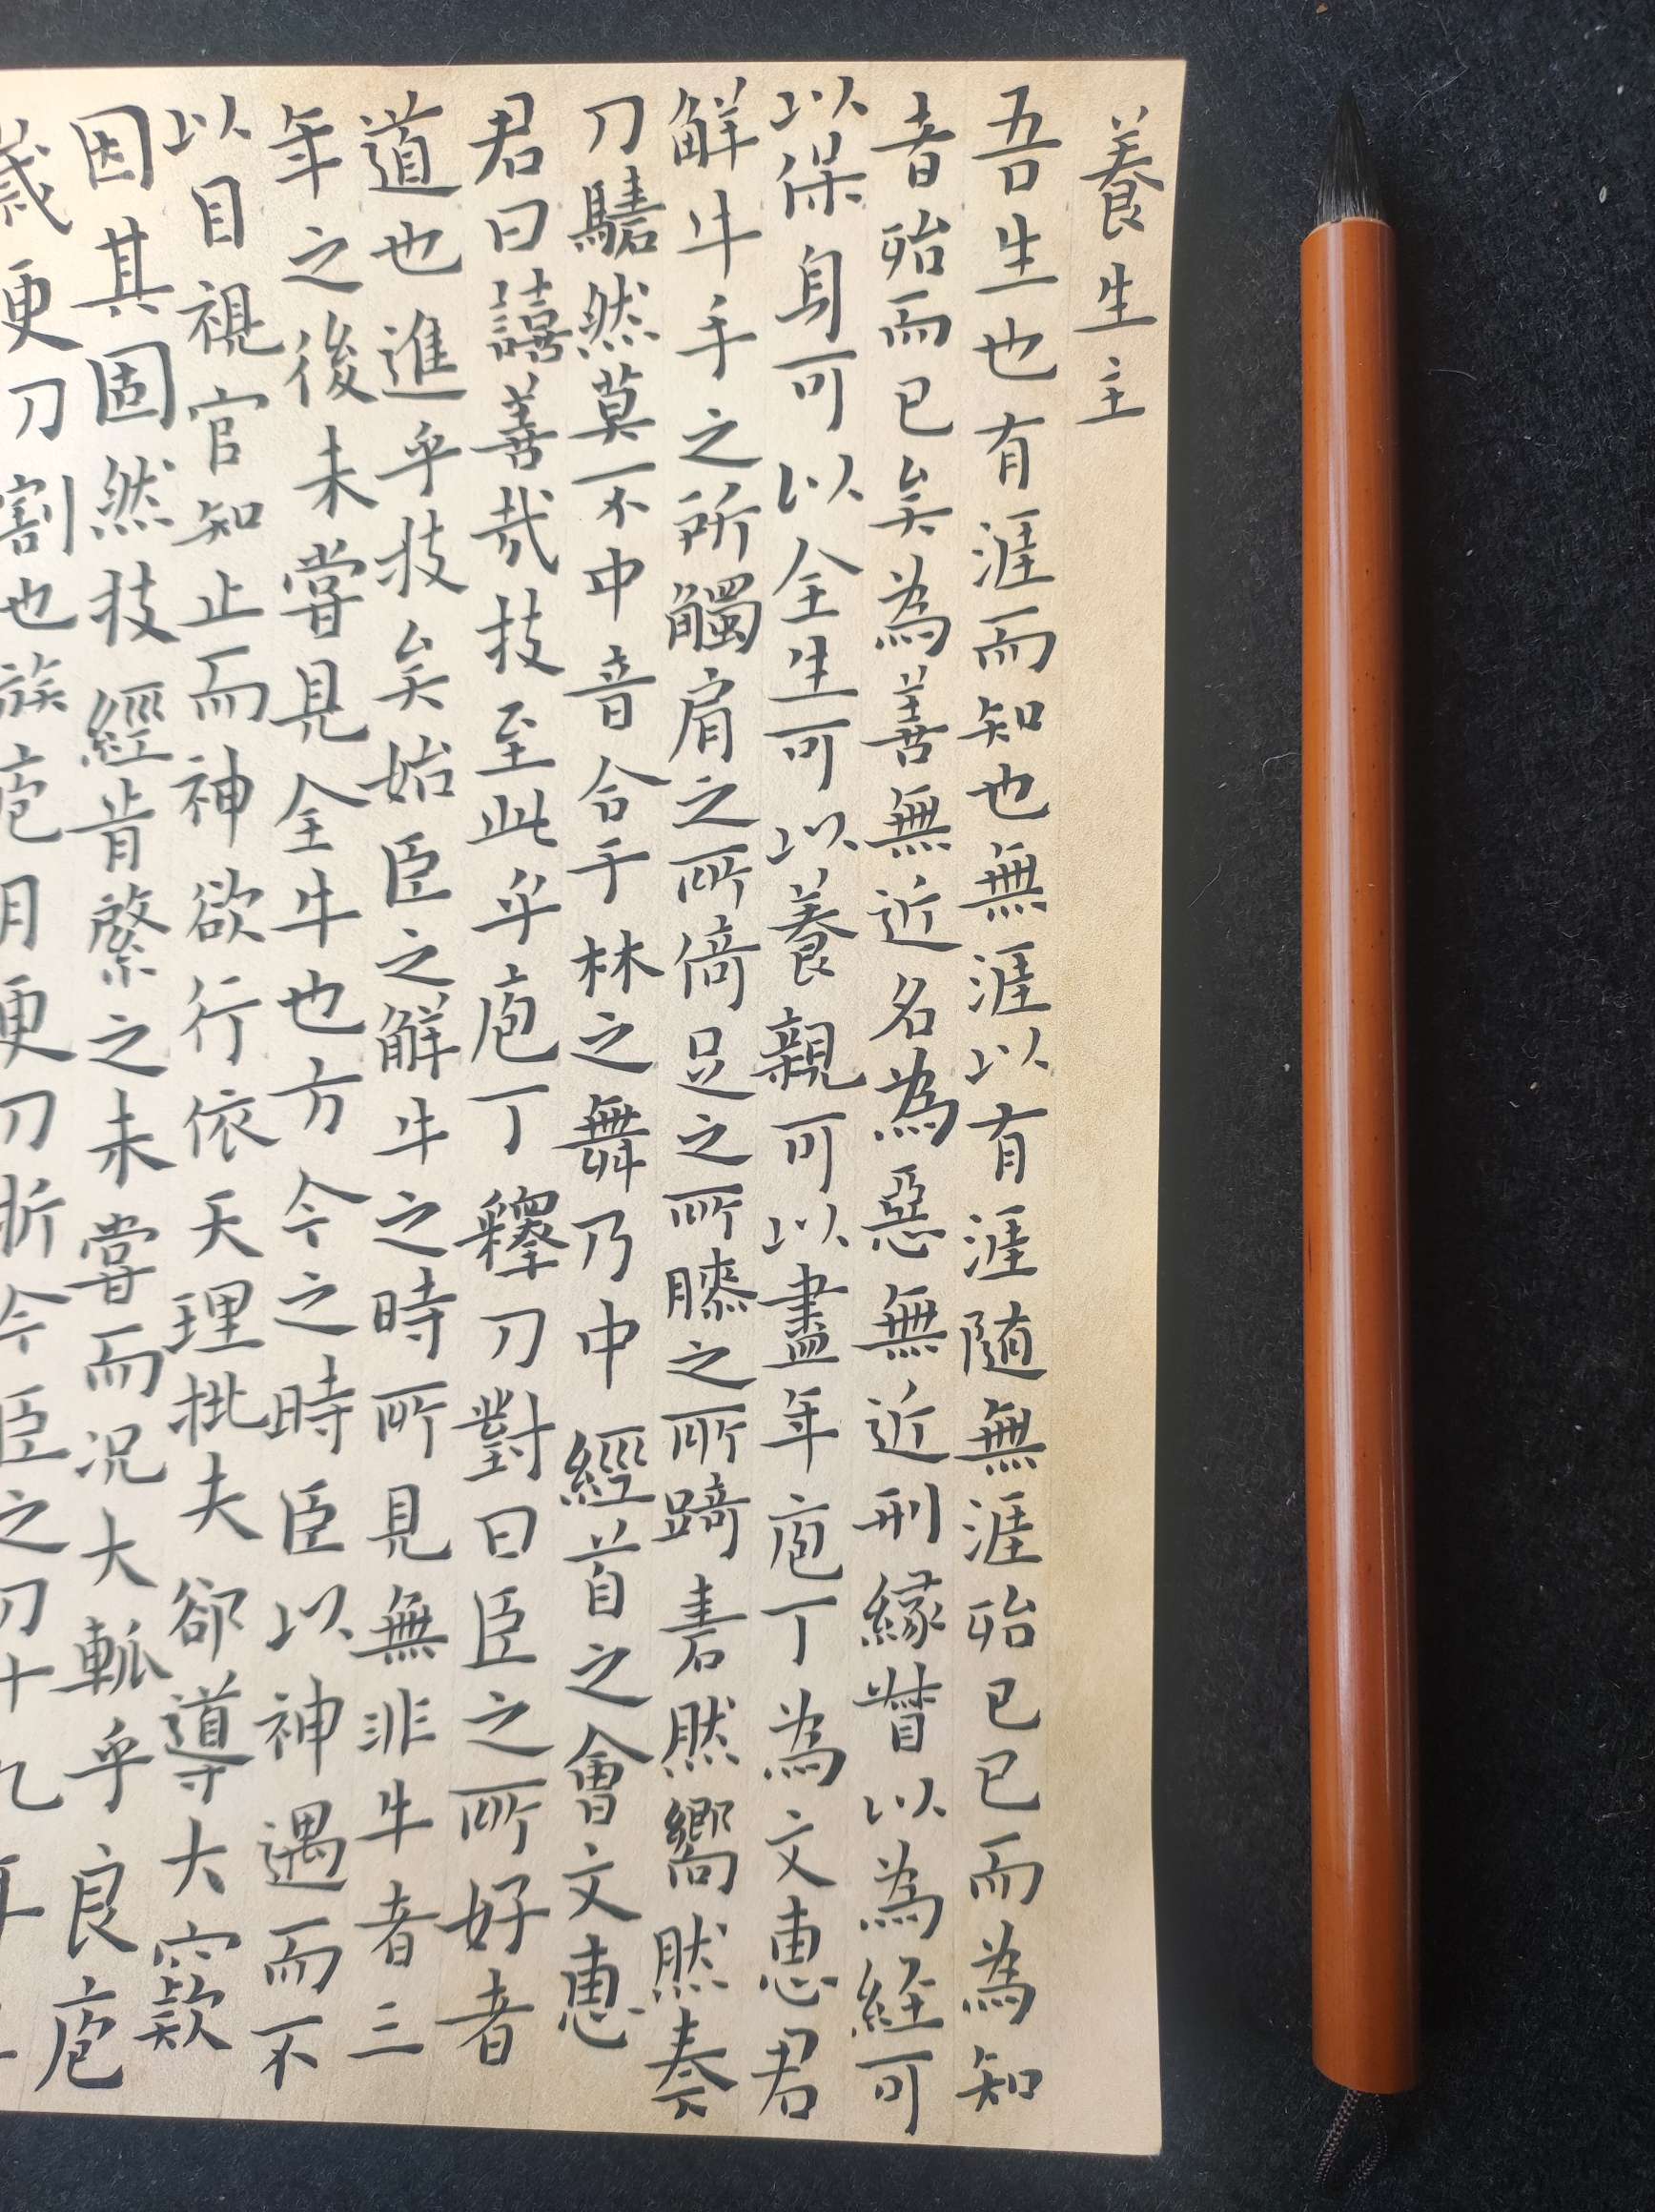 養生主
吾生也有涯而知也無涯以有涯隨無涯殆已已而為知
者殆而已矣為善無近名為惡無近刑緣督以為經可
以保身可以全生可以養親可以盡年庖丁為文惠君
解牛手之所觸肩之所倚足之所膝之所踦砉然嚮然奏
刀騞然莫不中音合于林之舞乃中經首之會文惠
君曰譆善哉技至此乎庖丁釋刀對曰臣之所好者
道也進乎技矣始臣之解牛之時所見無非牛者三
年之後未嘗見全牛也方今之時臣以神遇而不
以目視官知止而神欲行依天理批夫郤導大窾
因其固然技經肯綮之未嘗而況大軱乎良庖
歲更刀割也族庖月更刀折今臣之刀十九年